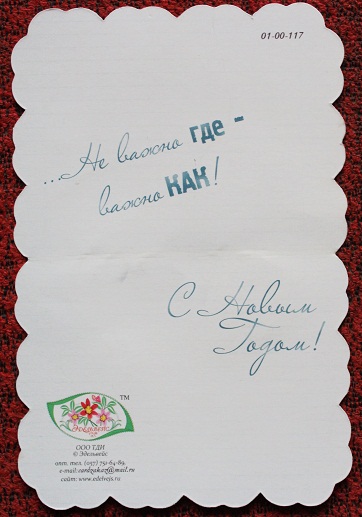 01-00-117
...Не важно где -
важно КАК!
С Новым
Годом!
Эдельвейс
TM
ООО ТДИ
© Эдельвейс
опт. тел. (057) 751-64-89,
e-mail: cardzakaz@mail.ru
сайт: www.edelvejs.ru